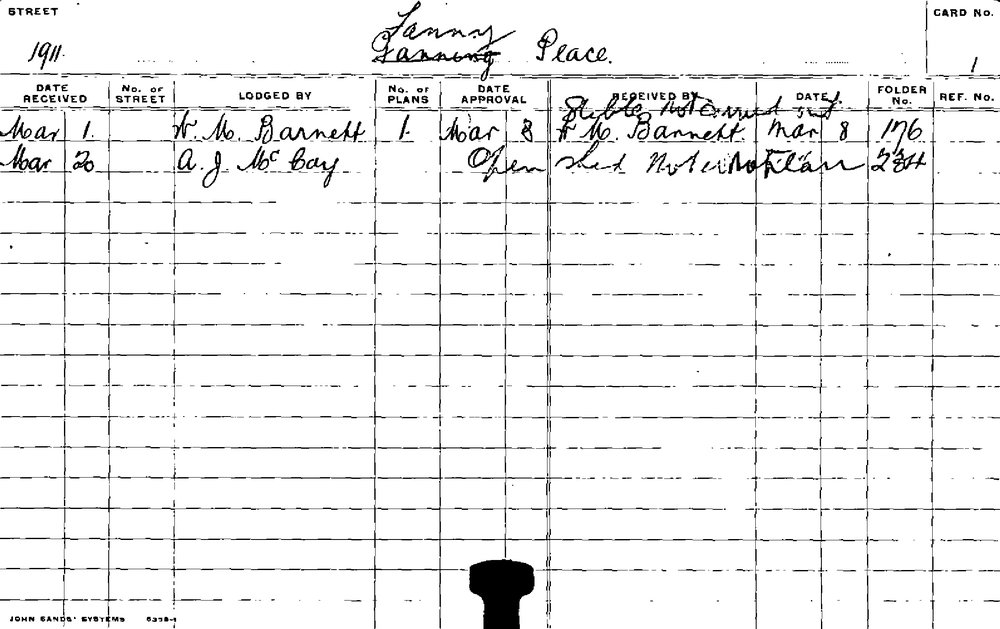 STREET
CARD No.
Fanny
1911. Fanning Place.
1
DATE RECEIVED No. OF STREET LODGED BY No. OF PLANS DATE APPROVAL RECEIVED BY DATE FOLDER No. REF. No.
Stables not carried out
Mar 1. W. M. Barnett 1. Mar 8 W M. Barnett. Mar 8 176
Mar 20 A. J. McCoy Open shed No Plan 234
JOHN SANDS' SYSTEMS